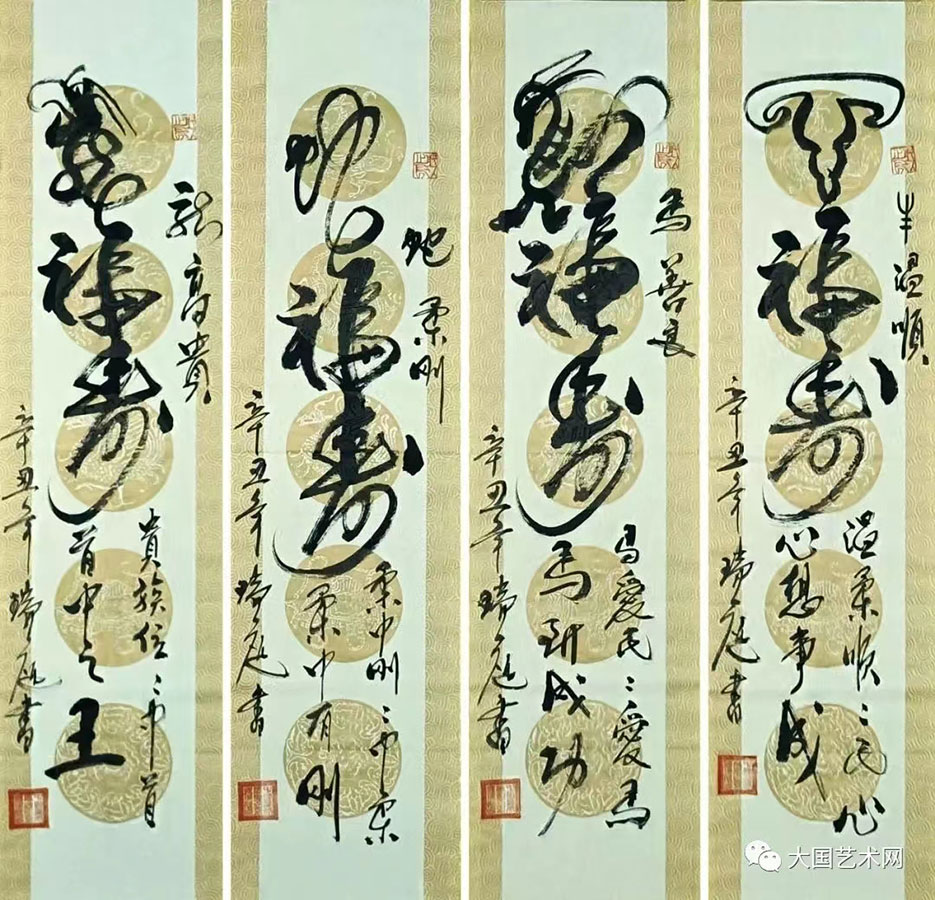 龙福寿
龙高贵
贵族位々中首
首中之王
辛丑年瑞庭书
蛇福寿
蛇柔刚
柔中刚々中柔
柔中有刚
辛丑年瑞庭书
马福寿
马善良
马爱民々爱马
马到成功
辛丑年瑞庭书
牛福寿
牛温顺
温柔顺々民心
心想事成
辛丑年瑞庭书
大国艺术网